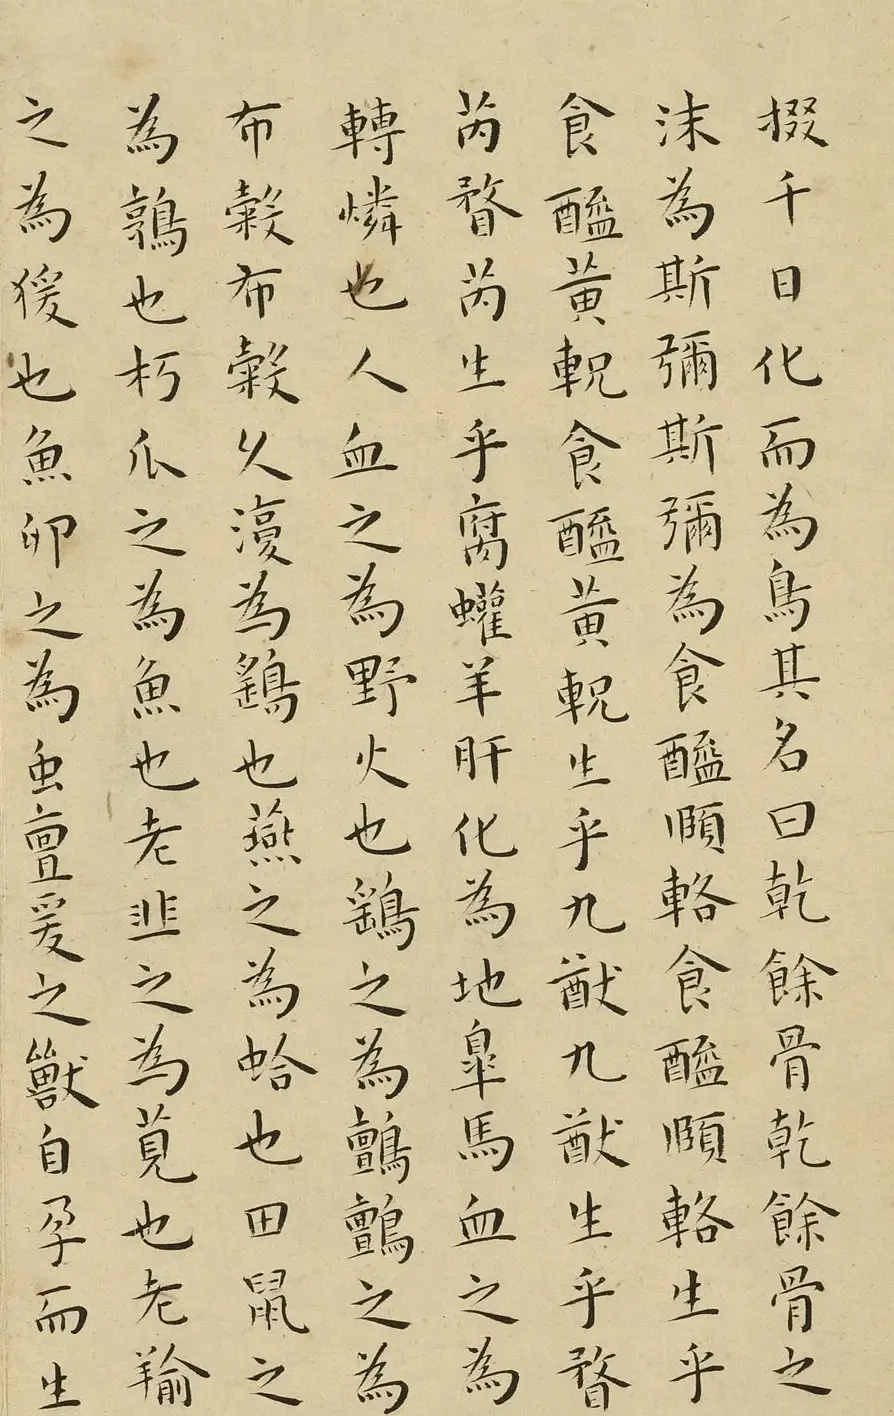 掇千日化而為鳥其名曰乾餘骨乾餘骨之
沫為斯彌斯彌為食醯頤輅食醯頤輅生乎
食醯黃軦食醯黃軦生乎九猷九猷生乎瞀
芮瞀芮生乎腐蠸羊肝化為地臯馬血之為
轉燐也人血之為野火也鷂之為鸇鸇之為
布穀布穀久復為鷂也燕之為蛤也田鼠之
為鶉也朽瓜之為魚也老韭之為莧也老羭
之為猨也魚卵之為虫亶爰之獸自孕而生